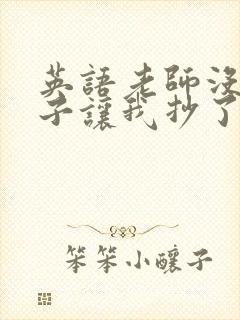 英語老師沒
子讓我抄了
笨笨小釀子